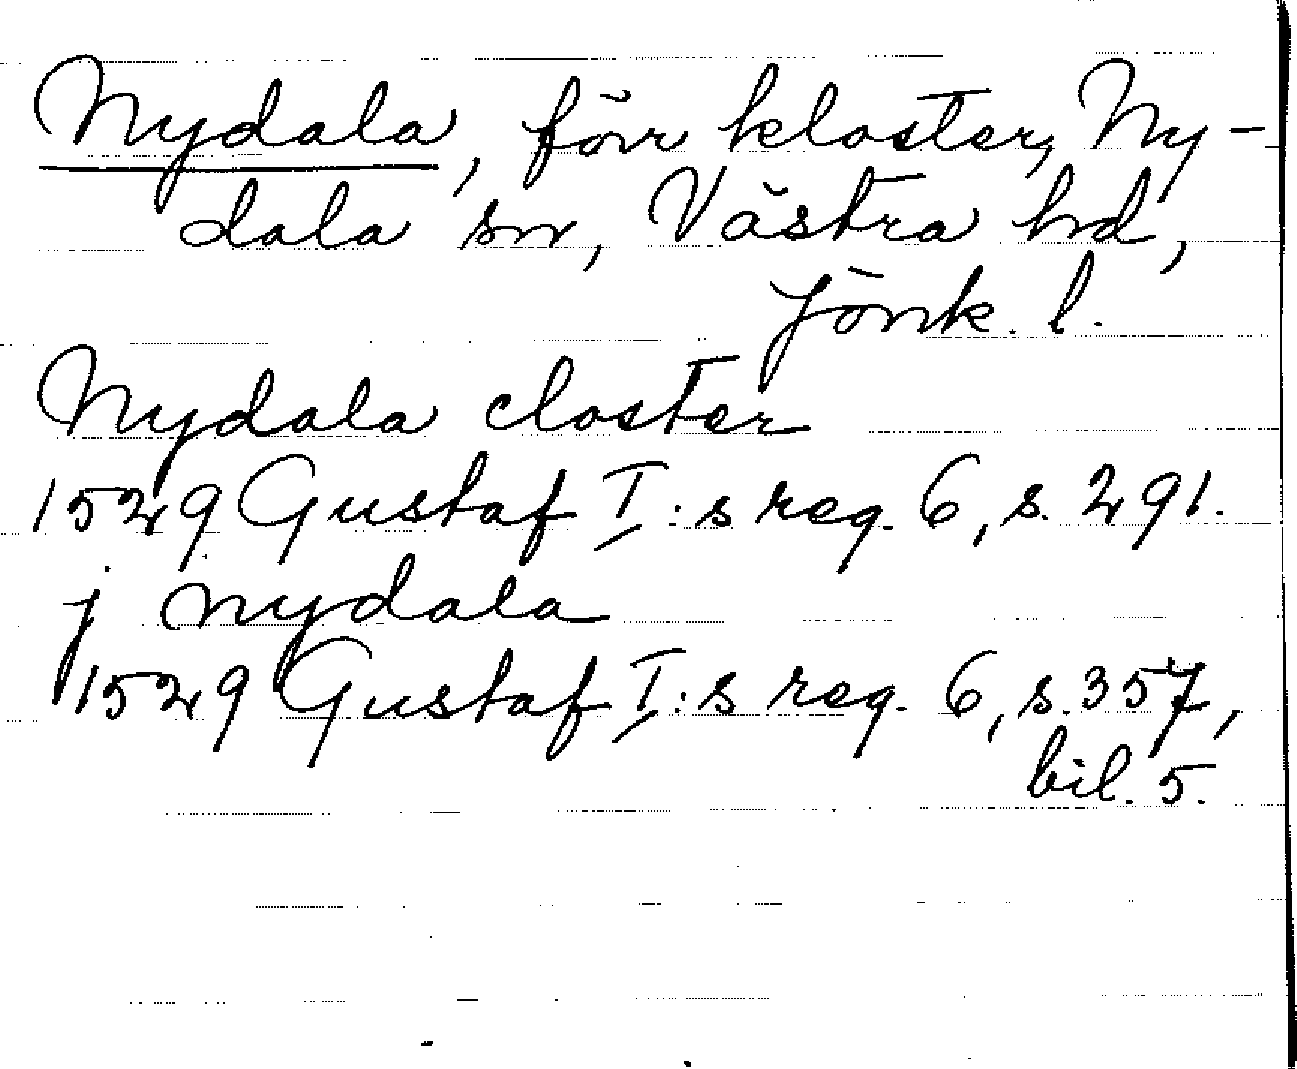 Nydala, förr kloster, Ny-
dala sn, Västra hd,
Jönk. l.
Nydala closter
1529 Gustaf I:s reg. 6, s. 291.
j nydala
1529 Gustaf I:s reg. 6, s. 357,
bil. 5.